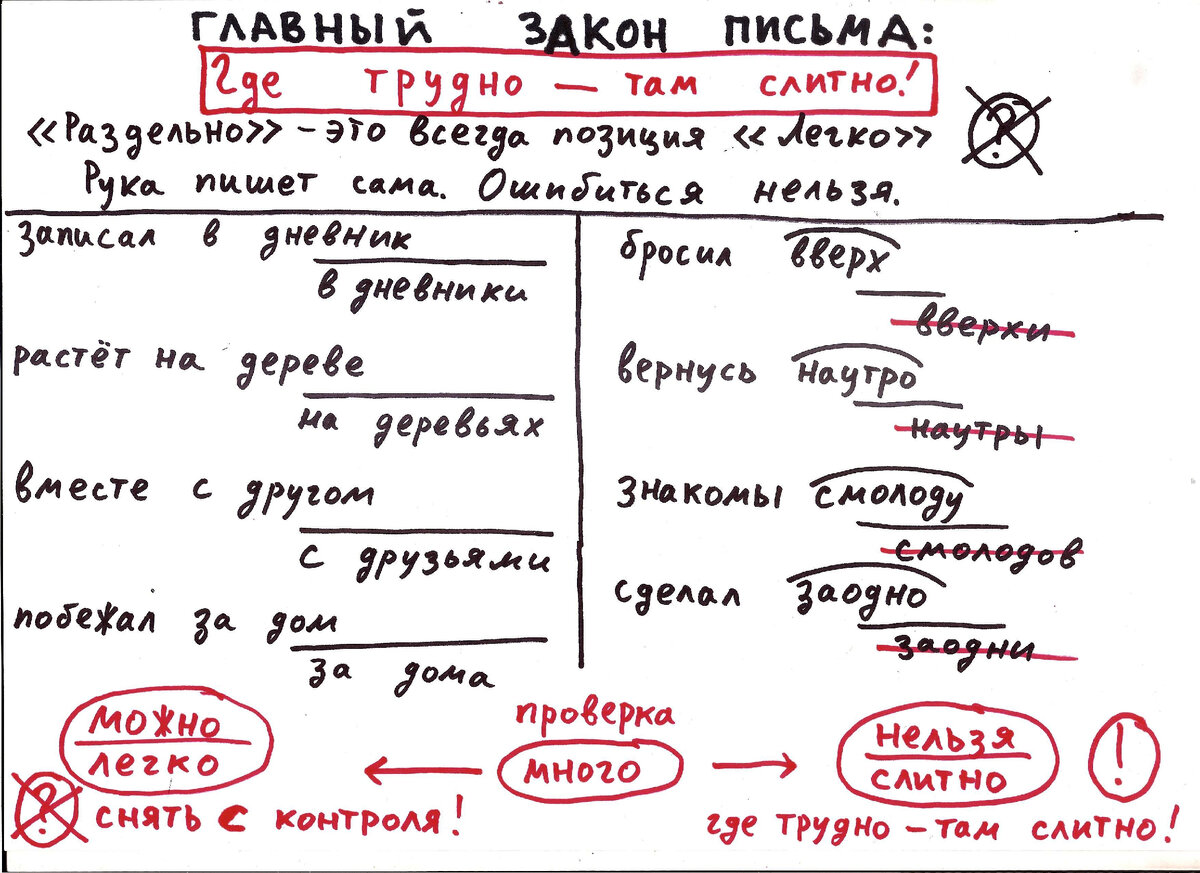 ГЛАВНЫЙ ЗАКОН ПИСЬМА:
Где трудно — там слитно!
«Раздельно» - это всегда позиция «Легко»
?
Рука пишет сама. Ошибиться нельзя.
записал в дневник
в дневники
растёт на дереве
на деревьях
вместе с другом
с друзьями
побежал за дом
за дома
бросил вверх
вверхи
вернусь наутро
наутры
знакомы смолоду
смолодов
сделал заодно
заодни
можно
легко
? снять с контроля!
проверка
много
нельзя
слитно
!
где трудно - там слитно!